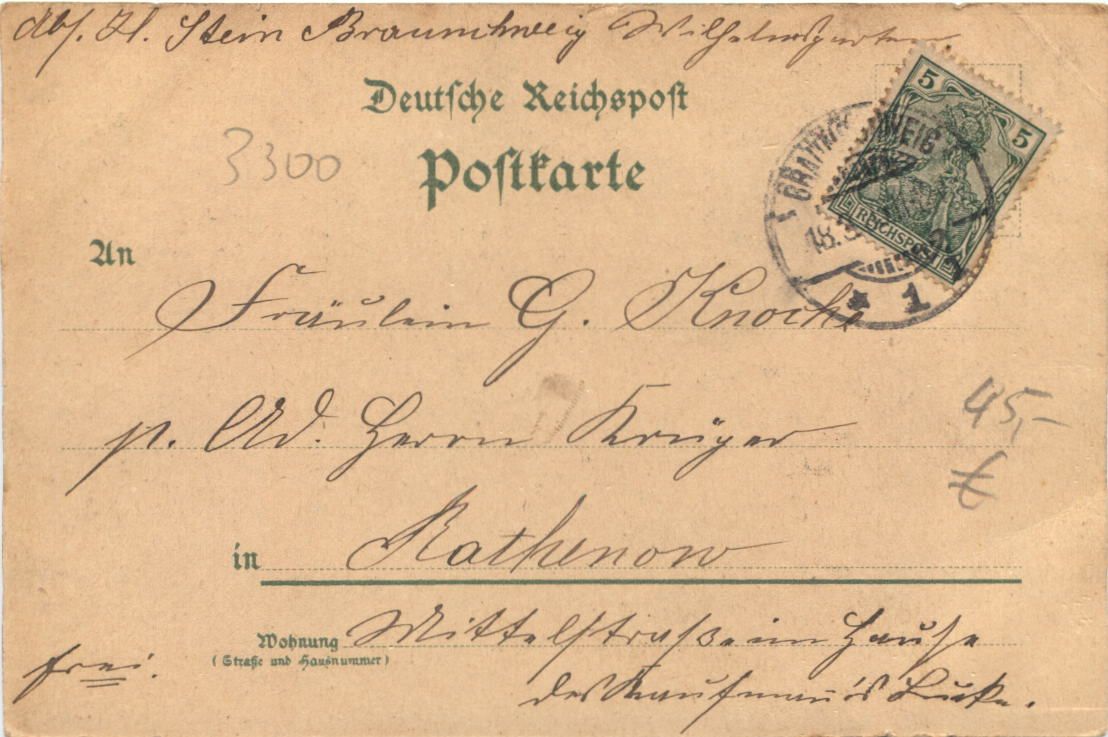 Abs. H. Stein Braunschweig Wilhelmsgarten
Deutsche Reichspost
Postkarte
3300
5 5
REICHSPOST
BRAUNSCHWEIG
18.
* 1
An
Fräulein G. Knoche
p. Ad. Herrn Krüger
45,-
€
in Rathenow
Wohnung Mittelstraße im Hause
(Straße und Hausnummer)
frei.
des Kaufmann's Lucke.